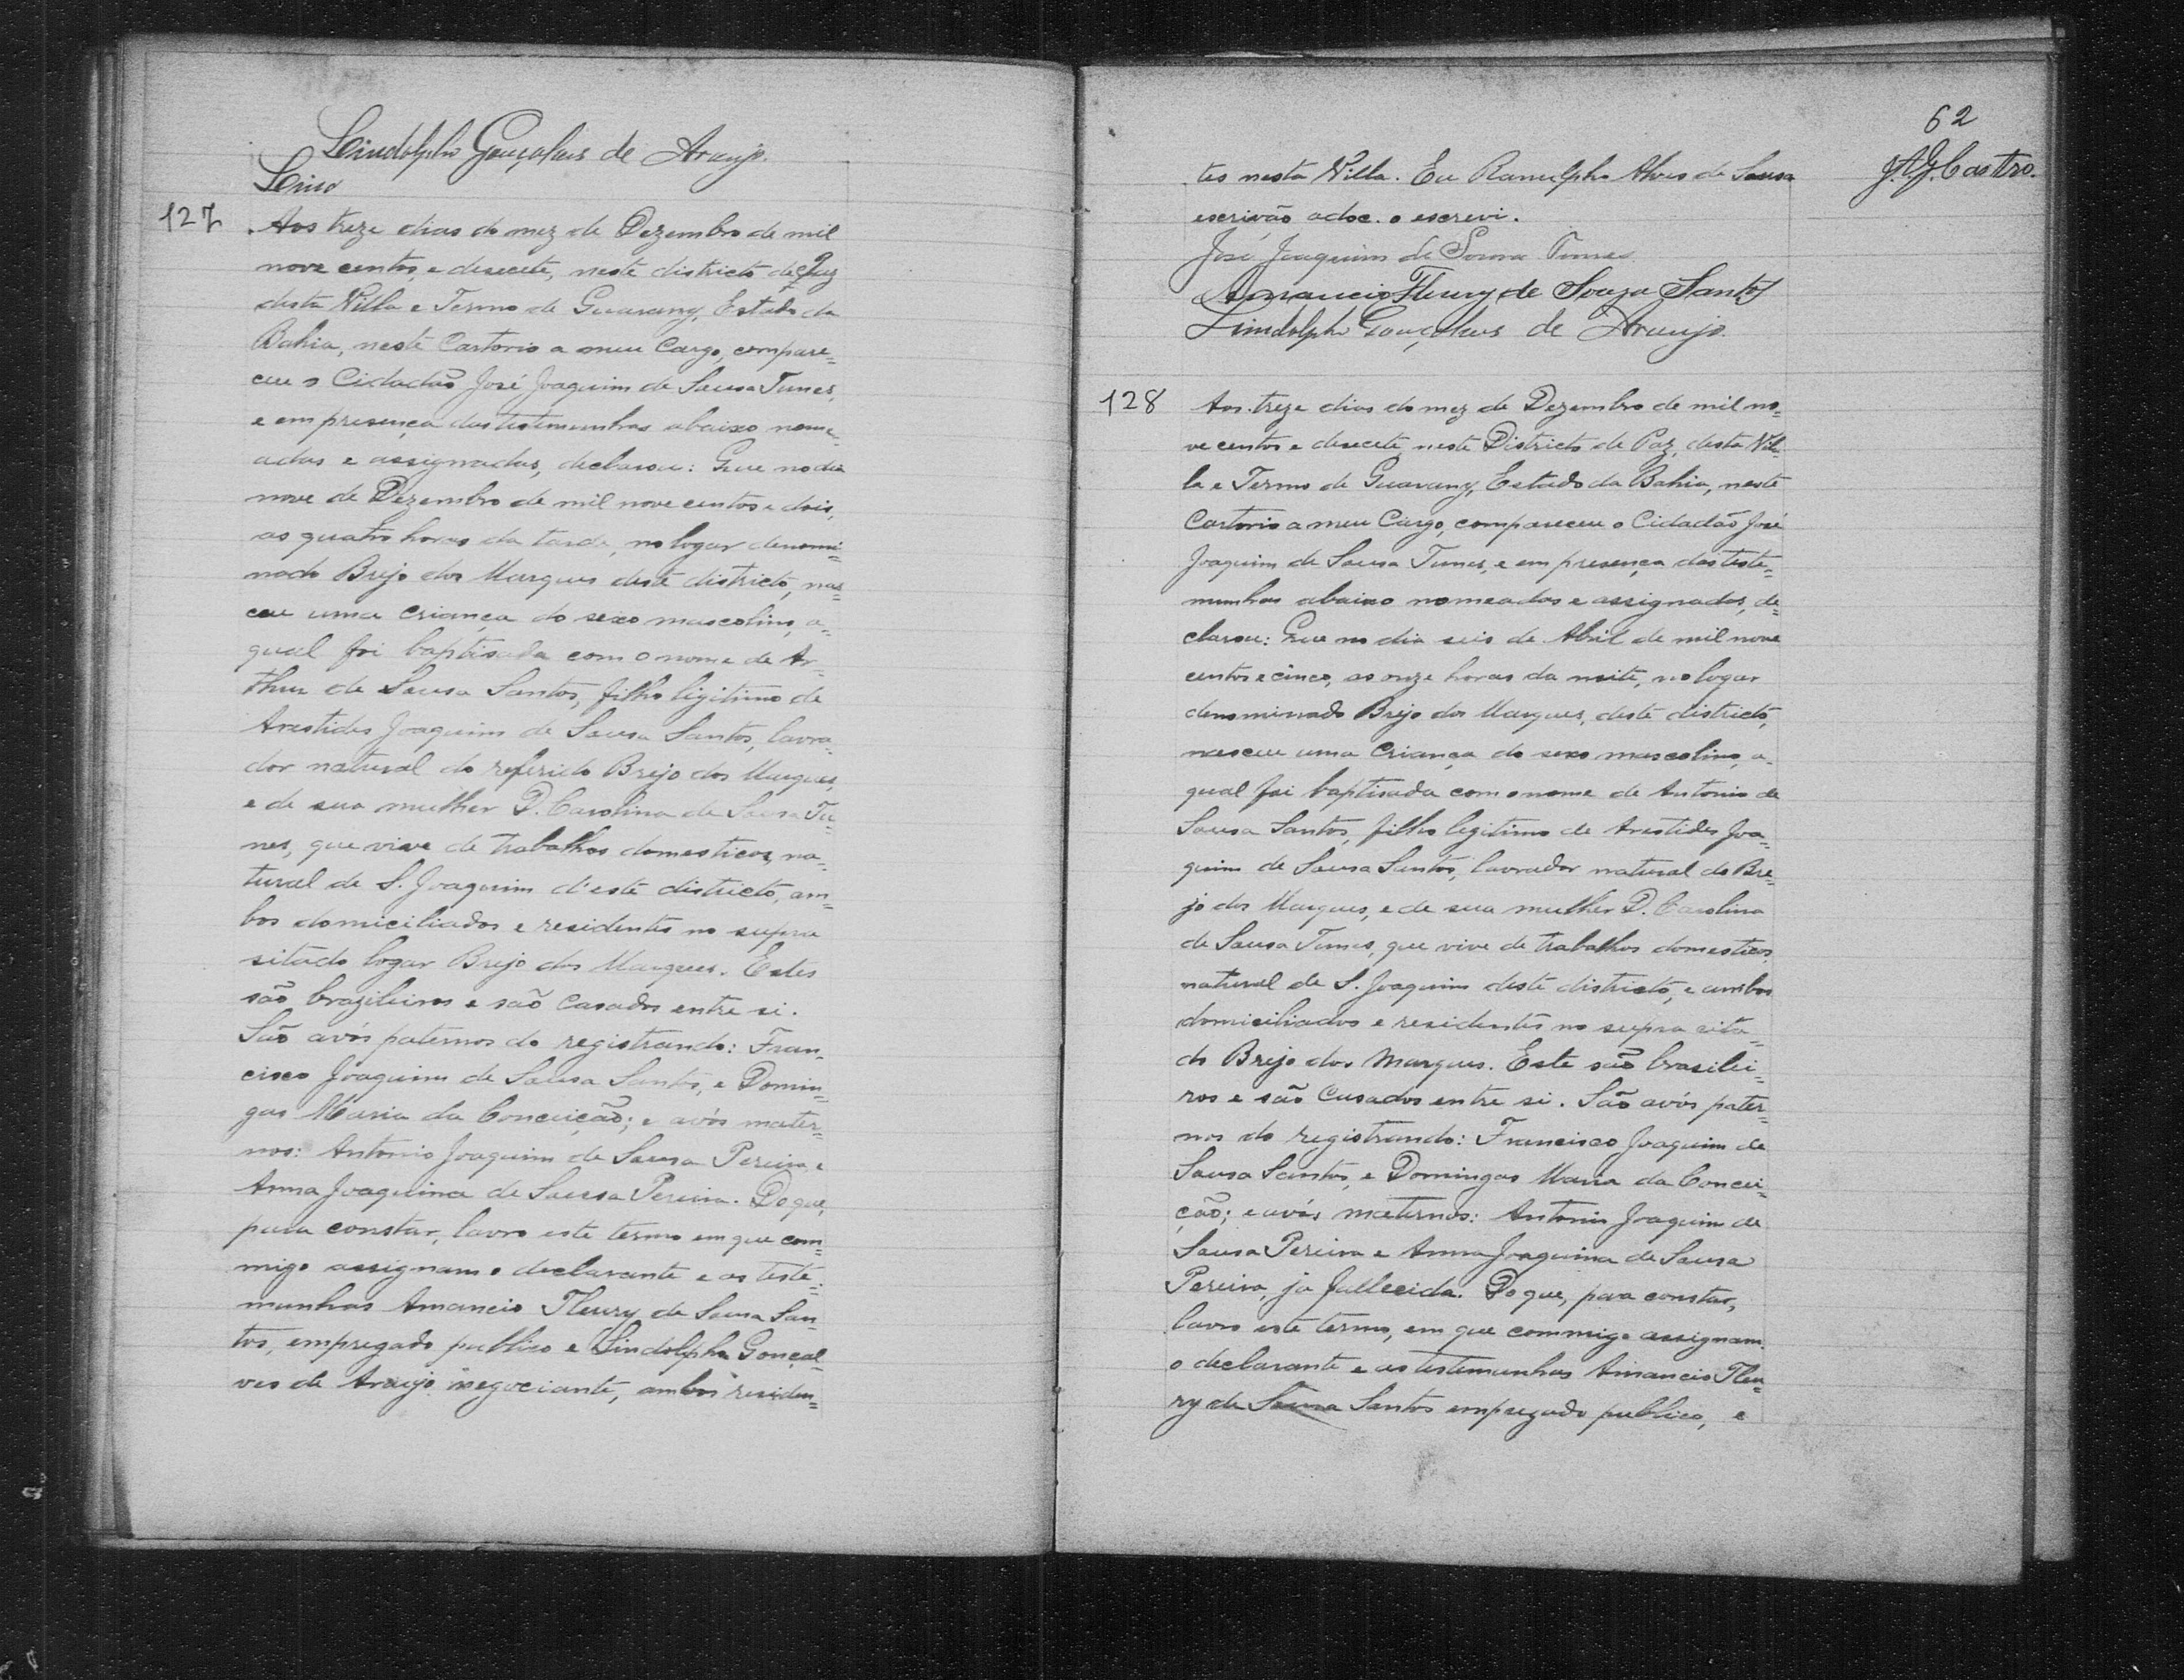 Lindolpho Gonçalves de Araujo.
Lino
127
Aos treze dias do mez de Dezembro de mil
nove centos e desecete, neste districto de Paz
desta Villa e Termo de Guarany, Estado da
Bahia, neste Cartorio a meu Cargo, compare=
ceu o Cidadão José Joaquim de Sousa Tunes,
e em presença das testemunhas abaixo nome
adas e assignadas, declarou: Que no dia
nove de Dezembro de mil nove centos e dois,
as quatro horas da tarde, no logar denomi=
nado Brejo dos Marques deste districto, nas=
ceu uma Criança do sexo mascolino, a=
qual foi baptisada com o nome de Ar=
thur de Sousa Santos, filho legitimo de
Arestides Joaquim de Sousa Santos, lavra=
dor natural do referido Brejo dos Marques,
e de sua mulher D. Carolina de Sousa Tu=
nes, que vive de trabalhos domesticos, na=
tural de S. Joaquim d'este districto, am=
bos domiciliados e residentes no supra
sitado logar Brejo dos Marques. Estes
são brazileiros e são Casados entre si.
São avós paternos do registrando: Fran=
cisco Joaquim de Sousa Santos, e Domin=
gas Maria da Conceição; e avós mater=
nos: Antonio Joaquim de Sousa Pereira e
Anna Joaquina de Sousa Pereira. Do que,
para constar, lavro este termo em que com=
migo assignam o declarante e as teste=
munhas Amancio Fleury de Sousa San=
tos, empregado publico e Lindolpho Gonçal=
ves de Araujo negociante, ambos residen=
62
J.A.J. Castro.
tes nesta Villa. Eu Ranulpho Alves de Sousa
escrivão adoc. o escrevi.
José Joaquim de Sousa Tunes
Amancio Fleury de Souza Santos
Lindolpho Gonçalves de Araujo.
128
Aos treze dias do mez de Dezembro de mil no=
ve centos e desecete, neste Districto de Paz, desta Vil=
la e Termo de Guarany, Estado da Bahia, neste
Cartorio a meu Cargo, compareceu o Cidadão José
Joaquim de Sousa Tunes, e em presença das teste=
munhas abaixo nomeadas e assignadas, de=
clarou: Que no dia seis de Abril de mil nove
centos e cinco, as onze horas da noite, no logar
denominado Brejo dos Marques, deste districto,
nasceu uma Criança do sexo mascolino, a=
qual foi baptisada com o nome de Antonio de
Sousa Santos, filho legitimo de Arestides Joa=
quim de Sousa Santos, lavrador natural do Bre=
jo dos Marques, e de sua mulher D. Carolina
de Sousa Tunes, que vive de trabalhos domesticos
natural de S. Joaquim deste districto, e ambos
domiciliados e residentes no supra cita=
do Brejo dos Marques. Este são brasilei=
ros e são Casados entre si. São avós pater=
nos do registrando: Francisco Joaquim de
Sousa Santos, e Domingas Maria da Concei=
ção; e avós maternos: Antonio Joaquim de
Sousa Pereira e Anna Joaquina de Sousa
Pereira, ja fallecida. Do que, para constar,
lavro este termo, em que commigo assignam
o declarante e as testemunhas Amancio Fleu=
ry de Sousa Santos empregado publico, e